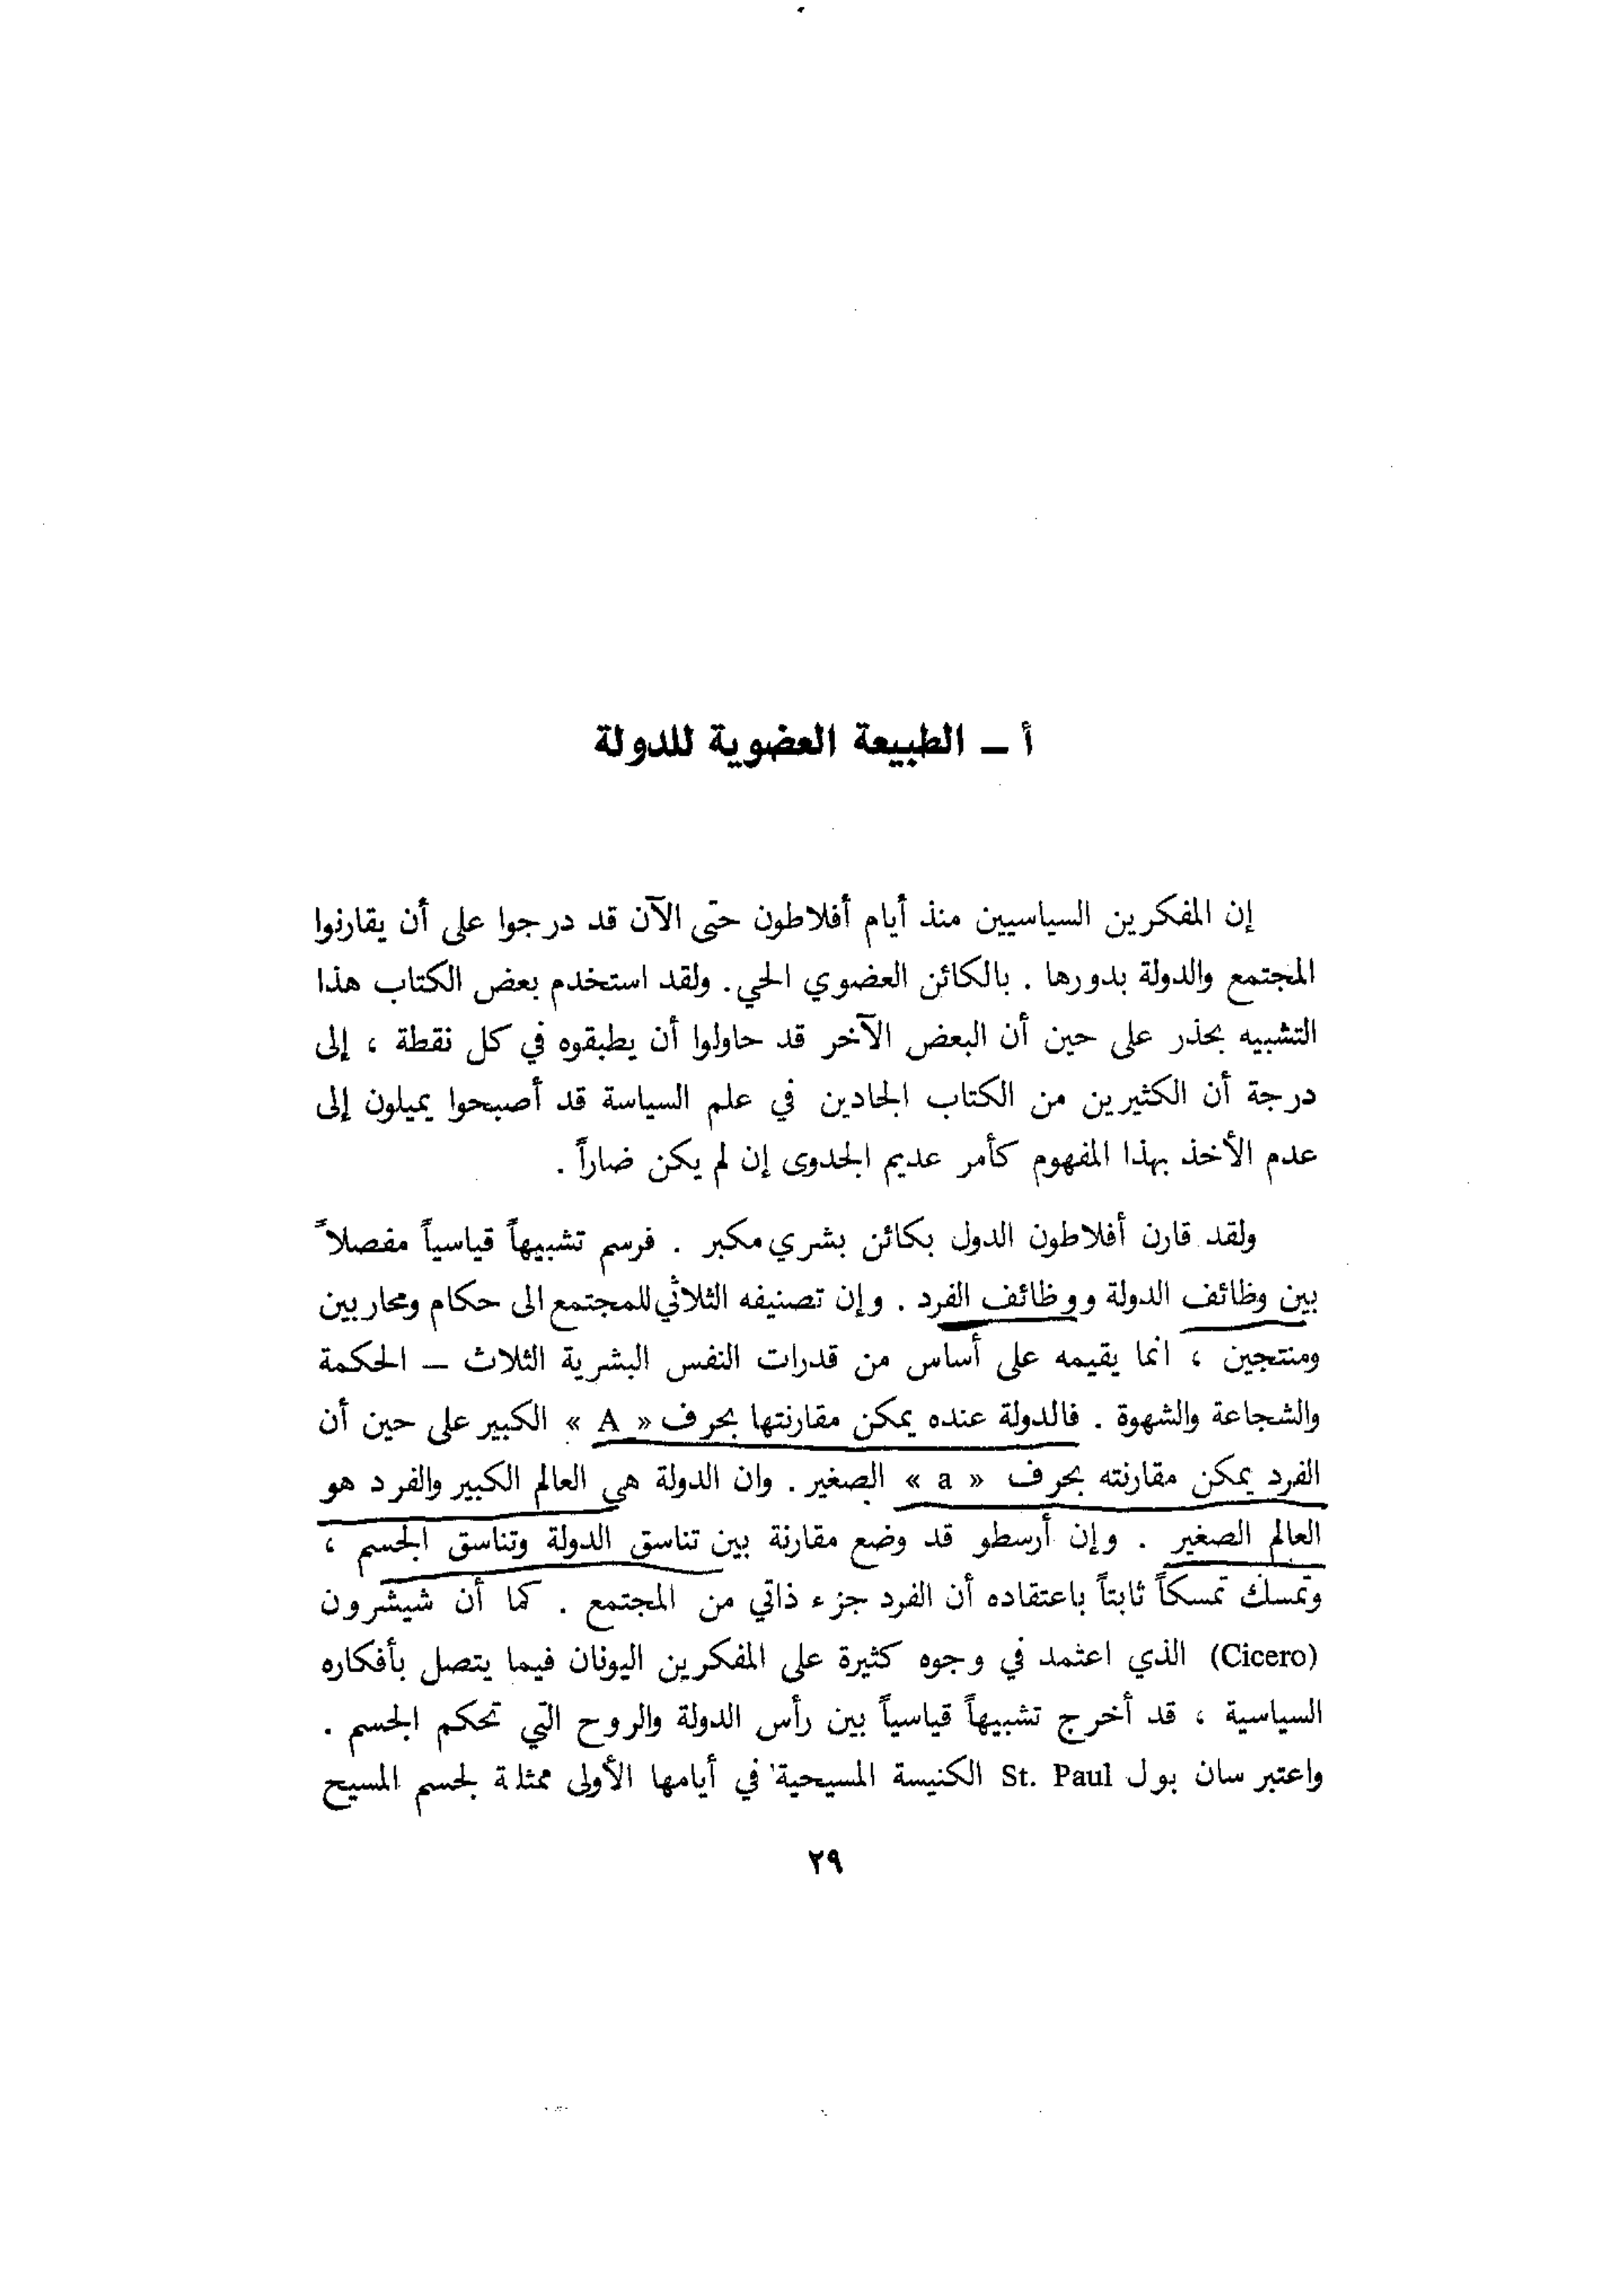 أ – الطبيعة العضوية للدولة
إن المفكرين السياسيين منذ أيام أفلاطون حتى الآن قد درجوا على أن يقارنوا
المجتمع والدولة بدورها . بالكائن العضوي الحي . ولقد استخدم بعض الكتاب هذا
التشبيه بحذر على حين أن البعض الآخر قد حاولوا أن يطبقوه في كل نقطة ، إلى
درجة أن الكثيرين من الكتاب الجادين في علم السياسة قد أصبحوا يميلون إلى
عدم الأخذ بهذا المفهوم كأمر عديم الجدوى إن لم يكن ضاراً .
ولقد قارن أفلاطون الدول بكائن بشري مكبر . فرسم تشبيهاً قياسياً مفصلاً
بين وظائف الدولة ووظائف الفرد . وإن تصنيفه الثلاثي للمجتمع الى حكام ومحاربين
ومنتجين ، انما يقيمه على أساس من قدرات النفس البشرية الثلاث – الحكمة
والشجاعة والشهوة . فالدولة عنده يمكن مقارنتها بحرف « A » الكبير على حين أن
الفرد يمكن مقارنته بحرف « a » الصغير . وان الدولة هي العالم الكبير والفرد هو
العالم الصغير . وإن أرسطو قد وضع مقارنة بين تناسق الدولة وتناسق الجسم ،
وتمسك تمسكاً ثابتاً باعتقاده أن الفرد جزء ذاتي من المجتمع . كما أن شيشرون
(Cicero) الذي اعتمد في وجوه كثيرة على المفكرين اليونان فيما يتصل بأفكاره
السياسية ، قد أخرج تشبيهاً قياسياً بين رأس الدولة والروح التي تحكم الجسم .
واعتبر سان بول St. Paul الكنيسة المسيحية في أيامها الأولى ممثلة لجسم المسيح
٢٩